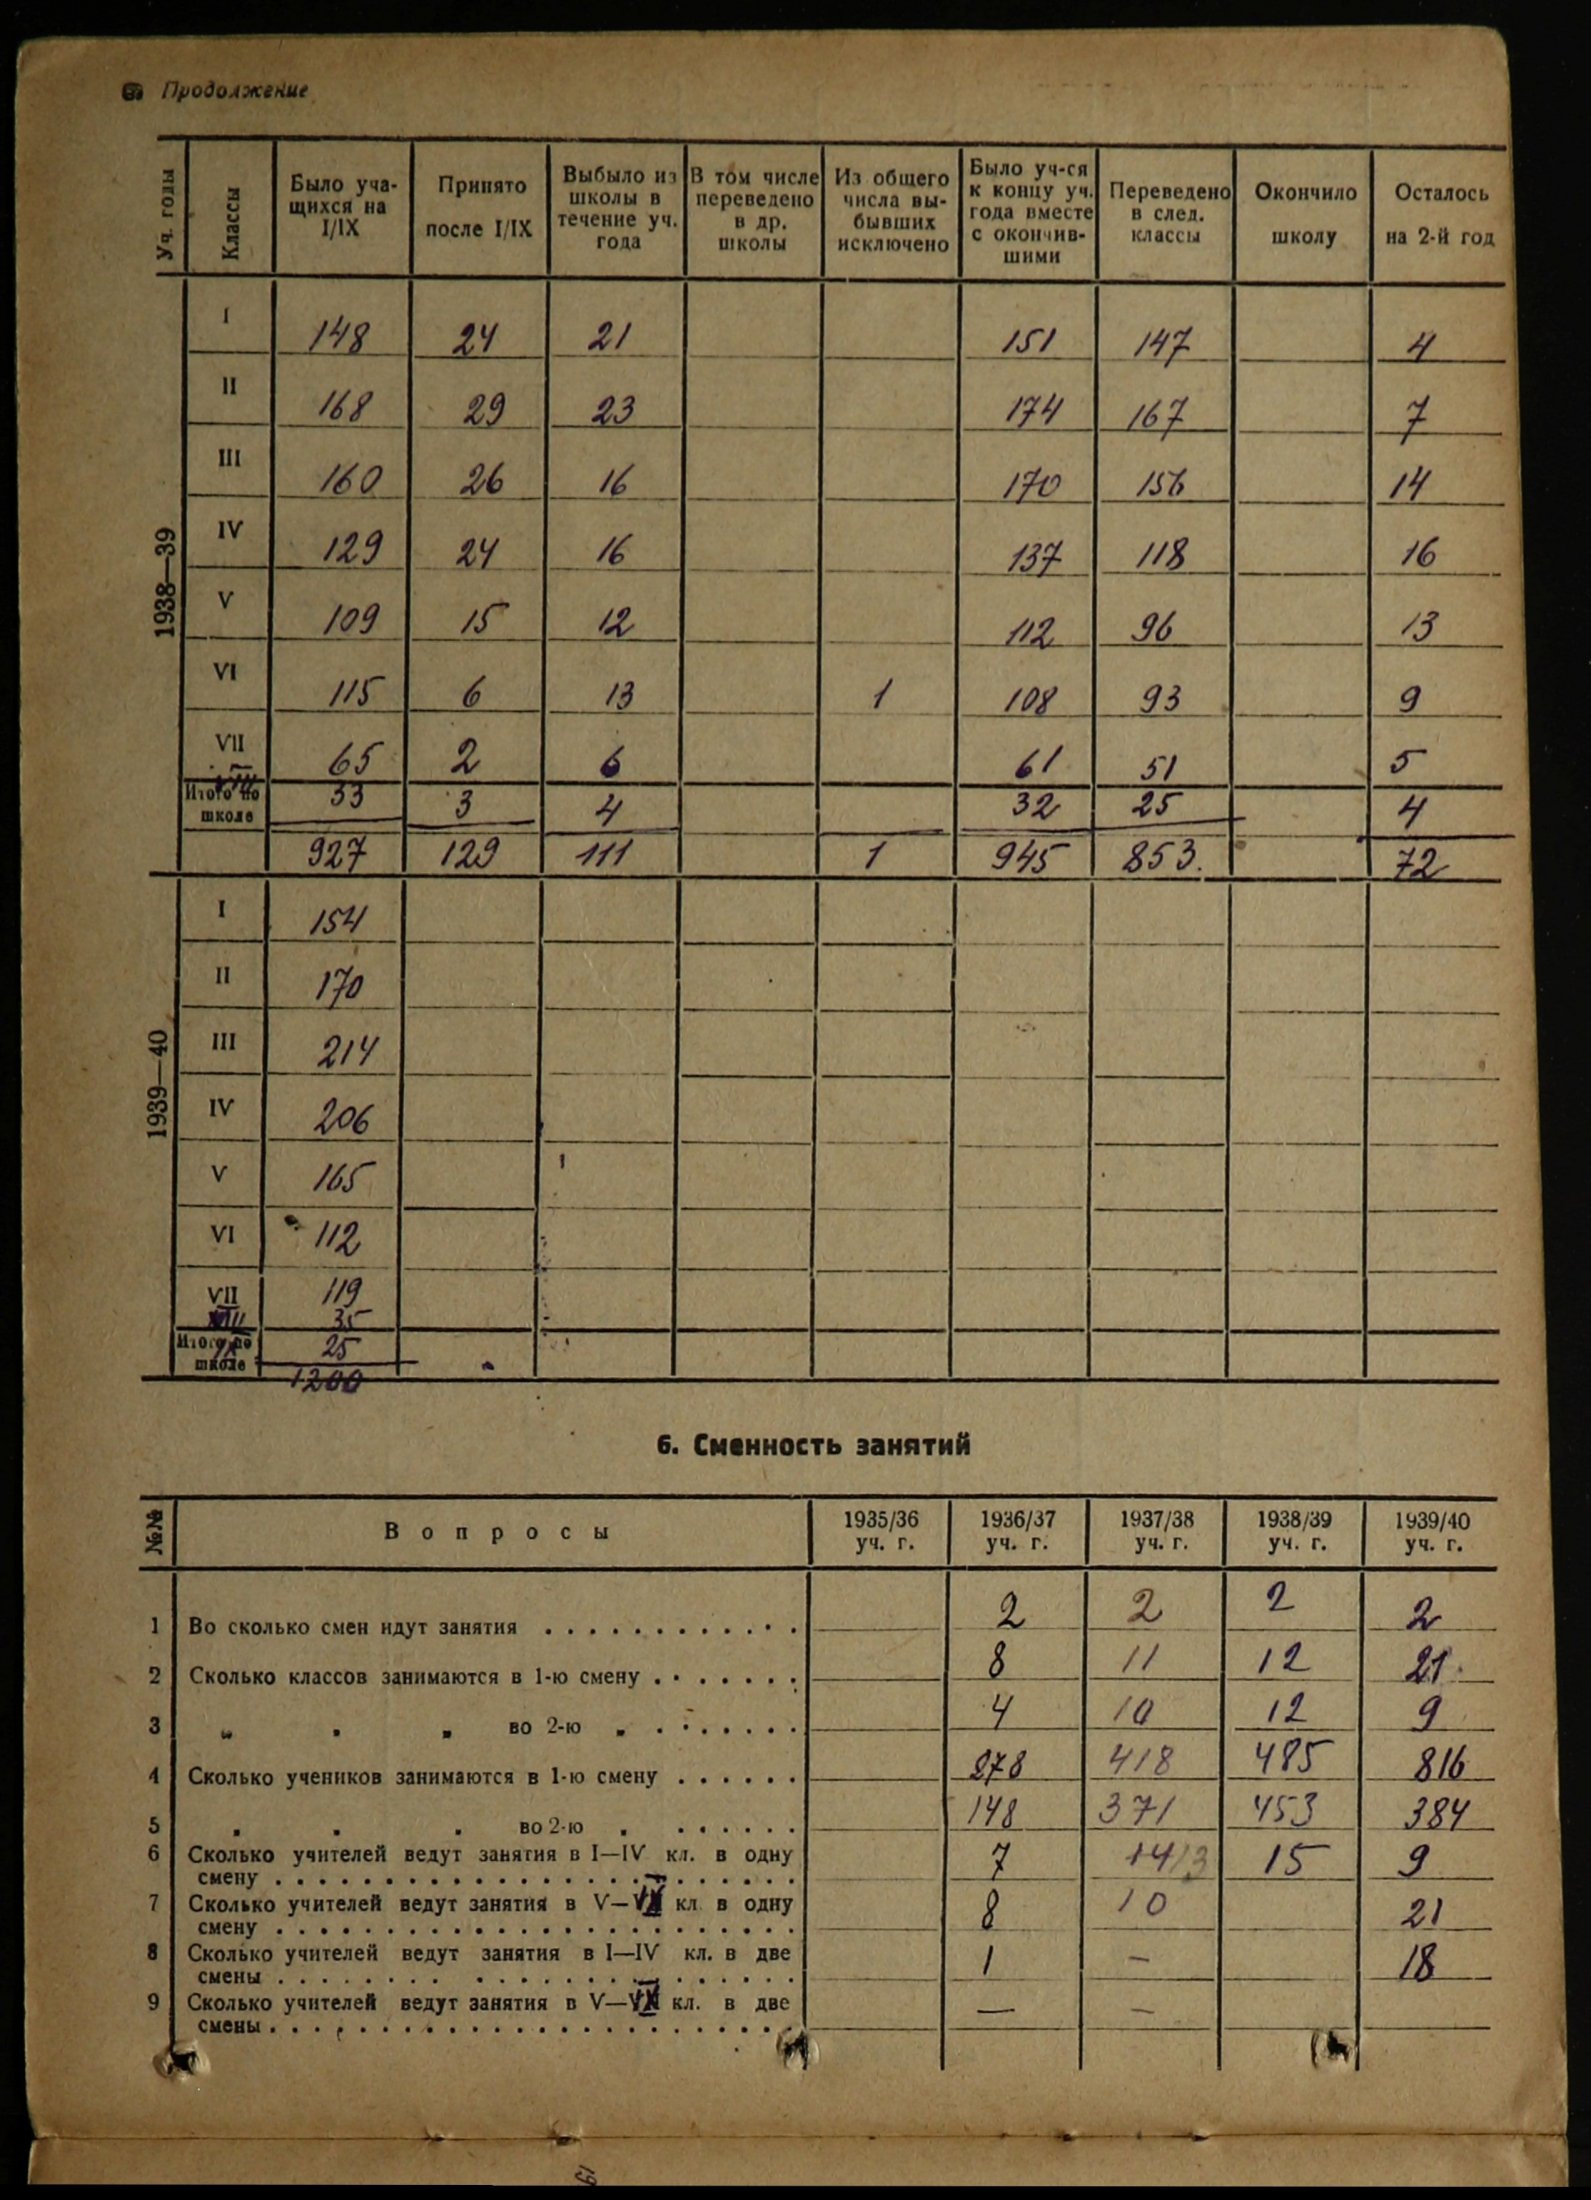 Продолжение
Уч. годы | Классы | Было учащихся на I/IX | Принято после I/IX | Выбыло из школы в течение уч. года | В том числе переведено в др. школы | Из общего числа выбывших исключено | Было уч-ся к концу уч. года вместе с окончившими | Переведено в след. классы | Окончило школу | Осталось на 2-й год
1938—39
I 148 24 21 151 147 4
II 168 29 23 174 167 7
III 160 26 16 170 156 14
IV 129 24 16 137 118 16
V 109 15 12 112 96 13
VI 115 6 13 1 108 93 9
VII 65 2 6 61 51 5
VIII 33 3 4 32 25 4
Итого по школе 927 129 111 1 945 853 72
1939—40
I 154
II 170
III 214
IV 206
V 165
VI 112
VII 119
VIII 35
IX 25
Итого по школе 1200
6. Сменность занятий
№№ Вопросы 1935/36 уч. г. 1936/37 уч. г. 1937/38 уч. г. 1938/39 уч. г. 1939/40 уч. г.
1 Во сколько смен идут занятия . . . . . . . . . . . . 2 2 2 2
2 Сколько классов занимаются в 1-ю смену . . . . . . . 8 11 12 21
3 „ „ „ во 2-ю „ . . . . . . . 4 10 12 9
4 Сколько учеников занимаются в 1-ю смену . . . . . . 278 418 485 816
5 „ „ „ во 2-ю „ . . . . . . 148 371 453 384
6 Сколько учителей ведут занятия в I—IV кл. в одну
смену . . . . . . . . . . . . . . . . . . . . . . . 7 14/3 15 9
7 Сколько учителей ведут занятия в V—IX кл. в одну
смену . . . . . . . . . . . . . . . . . . . . . . . 8 10 21
8 Сколько учителей ведут занятия в I—IV кл. в две
смены . . . . . . . . . . . . . . . . . . . . . . . 1 — 18
9 Сколько учителей ведут занятия в V—IX кл. в две
смены . . . . . . . . . . . . . . . . . . . . . . . — —